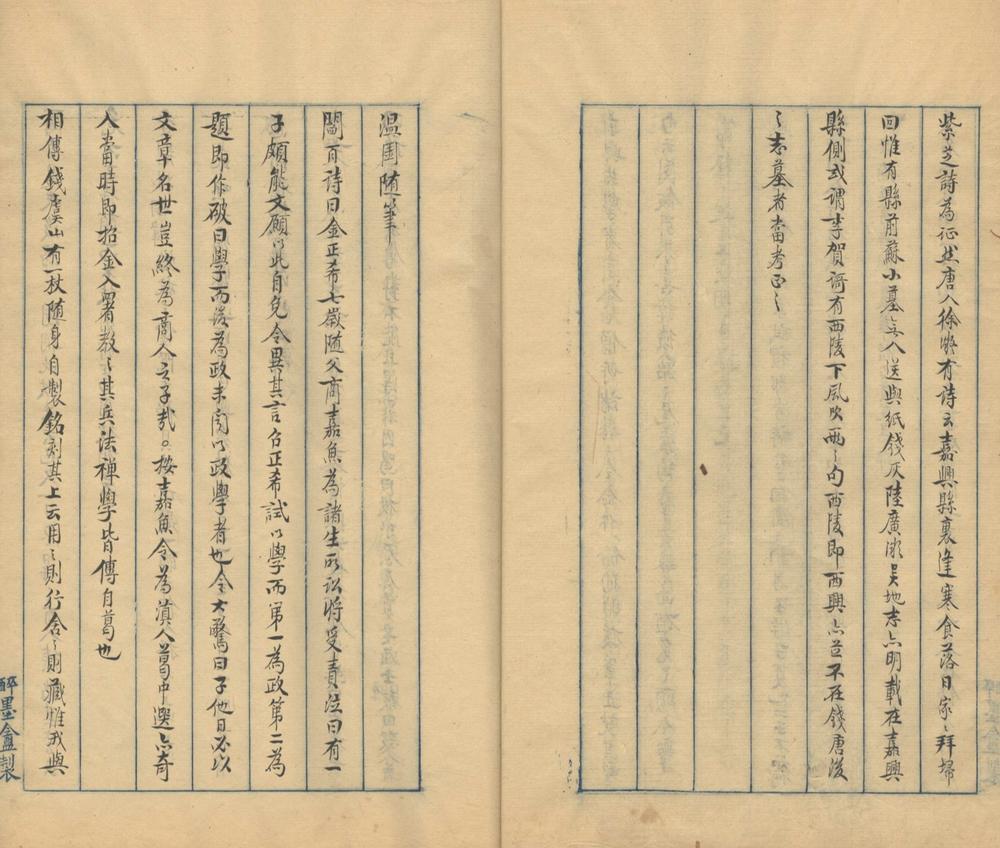 紫芝詩為征然唐人徐凝有詩云嘉興縣裏逢寒食落日家〻拜掃
回惟有縣前蘇小墓無人送與紙錢灰陸廣微吳地志亦明載在嘉興
縣側或謂李賀謌有西陵下風吹雨〻句西陵即西興亦豈不在錢唐後
〻志墓者當考正〻
温圃随筆
閻百詩曰金正希七歲随父商嘉魚為諸生所訟将受責泣曰有一
子頗能文願以此自免令異其言召正希試以學而第一為政第二為
題即作破曰學而後為政未聞以政學者也令大驚曰子他日必以
文章名世豈終為商人之子哉。按嘉魚令為滇人葛中選亦奇
人當時即招金入署教〻其兵法禅學皆傳自葛也
相傳錢虞山有一杖随身自製銘刻其上云用〻則行舍〻則藏惟我與
醉墨盦製